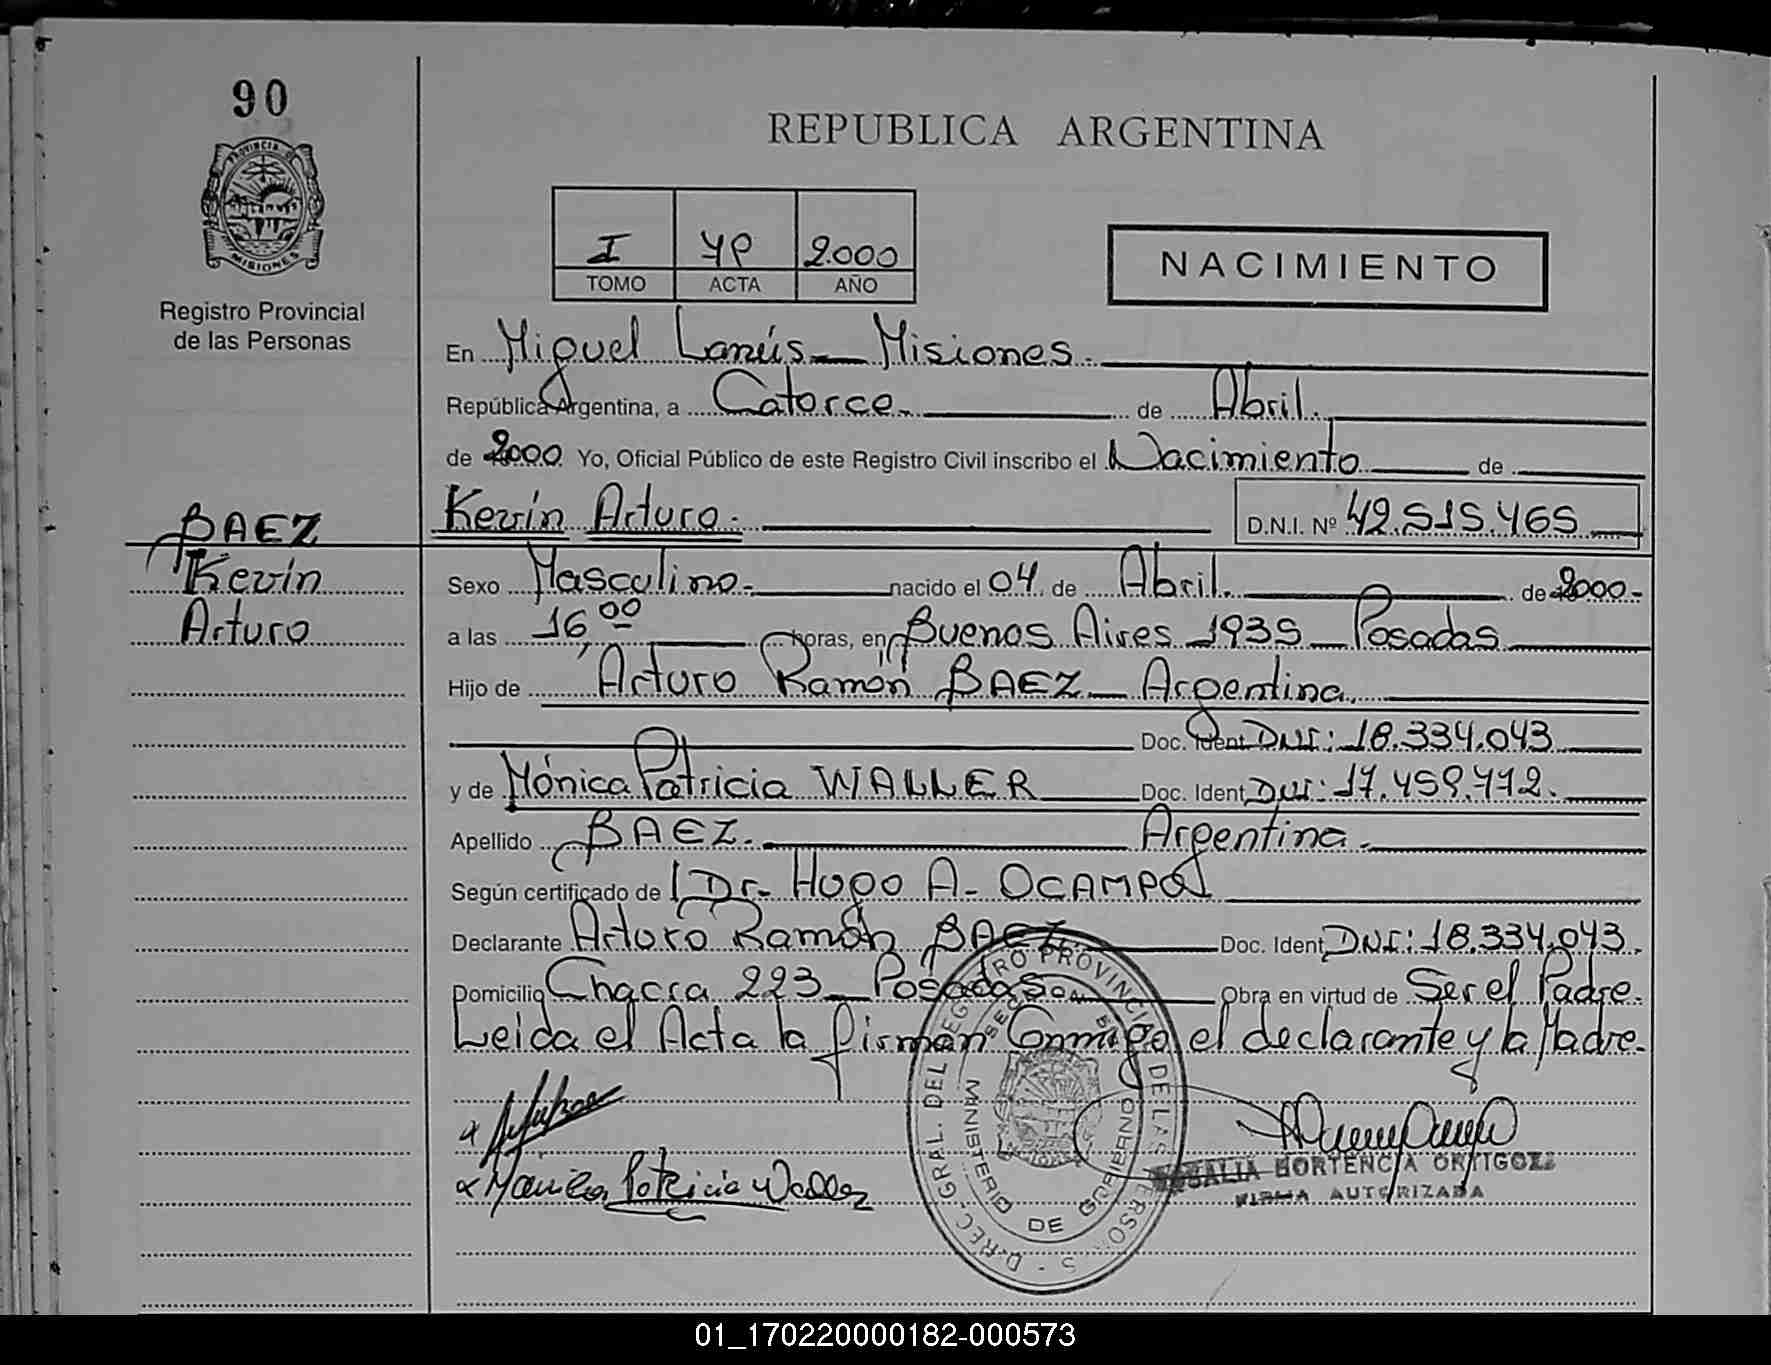 90
PROVINCIA DE
MISIONES
Registro Provincial
de las Personas
BAEZ
Kevin
Arturo
REPUBLICA ARGENTINA
I 79 2.000
TOMO ACTA AÑO
NACIMIENTO
En Miguel Lanús - Misiones.
República Argentina, a Catorce. de Abril.
de 2000 Yo, Oficial Público de este Registro Civil inscribo el Nacimiento de
Kevin Arturo. D.N.I. Nº 42.515.465
Sexo Masculino. nacido el 04 de Abril. de 2000.
a las 16,00 horas, en Buenos Aires 1935 - Posadas
Hijo de Arturo Ramón BAEZ - Argentina.
Doc. Ident. DNI: 18.334.043
y de Mónica Patricia WALLER Doc. Ident. DNI: 17.459.772.
Apellido BAEZ. Argentina.
Según certificado de Dr. Hugo A. OCAMPO
Declarante Arturo Ramón BAEZ. Doc. Ident. DNI: 18.334.043.
Domicilio Chacra 223 - Posadas. Obra en virtud de Ser el Padre.
Leida el Acta la firman Conmigo el declarante y la Madre.
Patricia Waller
HORTENCIA ORTIGOZA
FIRMA AUTORIZADA
MINISTERIO DE GOBIERNO
01_170220000182-000573